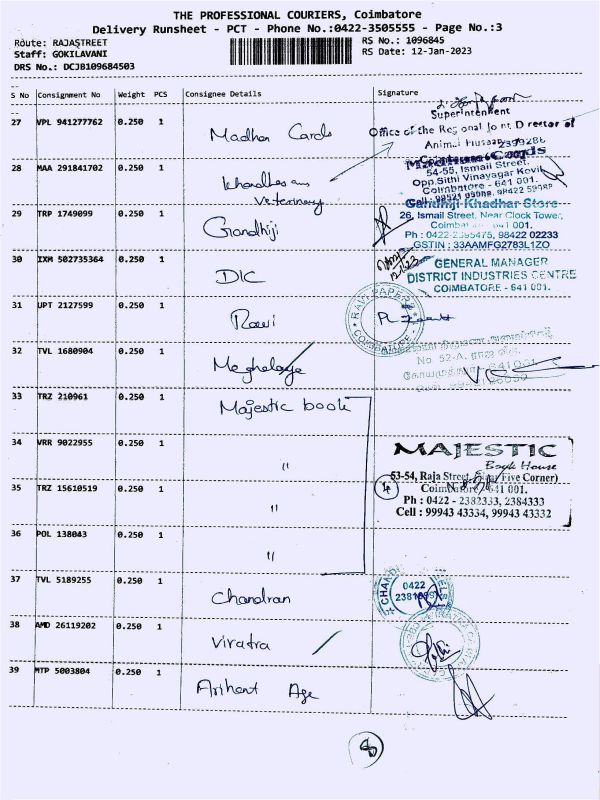 THE PROFESSIONAL COURIERS, Coimbatore
Delivery Runsheet - PCT - Phone No.:0422-3505555 - Page No.:3
Route: RAJASTREET
RS No.: 1096845
Staff: GOKILAVANI
RS Date: 12-Jan-2023
DRS No.: DCJB109684503
S No Consignment No Weight PCS Consignee Details Signature
Superintendent
27 VPL 941277762 0.250 1 Madhan Cards
Office of the Regional Joint Director of
Animal
28 MAA 291841702 0.250 1
Veterinary
Cards
54-55, Ismail Street,
Opp.Sithi Vinayagar Kovil,
Coimbatore - 641 001.
29 TRP 1749099 0.250 1 Gandhiji
Gandhiji Khadhar Store
26, Ismail Street, Near Clock Tower,
641 001.
Ph : 0422-2395475, 98422 02233
GSTIN : 33AAMFG2783L1ZO
30 IXM 502735364 0.250 1 DIC
GENERAL MANAGER
DISTRICT INDUSTRIES CENTRE
COIMBATORE - 641 001.
31 UPT 2127599 0.250 1 Ravi
RAVI PAPERS
COIMBATORE
32 TVL 1680904 0.250 1
No 52-A,
33 TRZ 210961 0.250 1 Majestic book
34 VRR 9022955 0.250 1 "
MAJESTIC
Book House
53-54, Raja Street, (Near Five Corner)
Coimbatore 641 001.
35 TRZ 15610519 0.250 1 "
4
Ph : 0422 - 2382333, 2384333
Cell : 99943 43334, 99943 43332
36 POL 138043 0.250 1 "
37 TVL 5189255 0.250 1 Chandran
0422
38 AMD 26119202 0.250 1 Viratra
39 MTP 5003804 0.250 1 Arihant Age